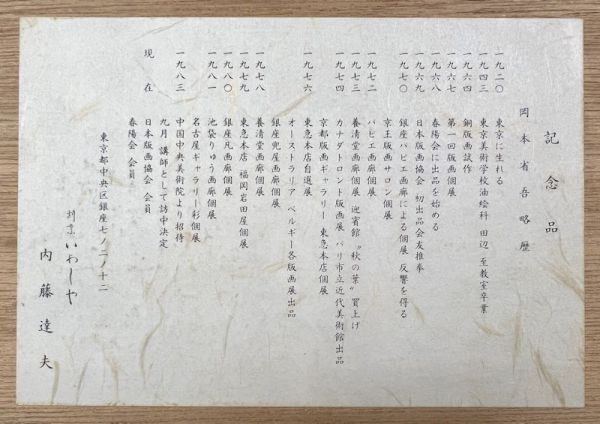 記念品
岡本省吾略歴
一九二〇 東京に生れる
一九四三 東京美術学校油絵科 田辺 至教室卒業
一九六四 銅版画試作
一九六七 第一回版画個展
一九六八 春陽会に出品を始める
一九六九 日本版画協会 初出品会友推挙
一九七〇 銀座パピエ画廊による個展 反響を得る
京王版画サロン個展
一九七二 パピエ画廊個展
一九七三 養清堂画廊個展 迎賓館“秋の葉”買上げ
一九七四 カナダトロント版画展 パリ市立近代美術館出品
京都版画ギャラリー 東急本店個展
一九七六 東急本店自選展
オーストラリア ベルギー各版画展出品
銀座兜屋画廊個展
一九七八 養清堂画廊個展
一九七九 東急本店 福岡岩田屋個展
一九八〇 銀座凡画廊個展
一九八一 池袋りゅう画廊個展
名古屋ギャラリー彩個展
一九八三 中国中央美術院より招待
九月 講師として訪中決定
現在 日本版画協会 会員
春陽会 会員
東京都中央区銀座七ノ二ノ十二
いわしや
内藤達夫